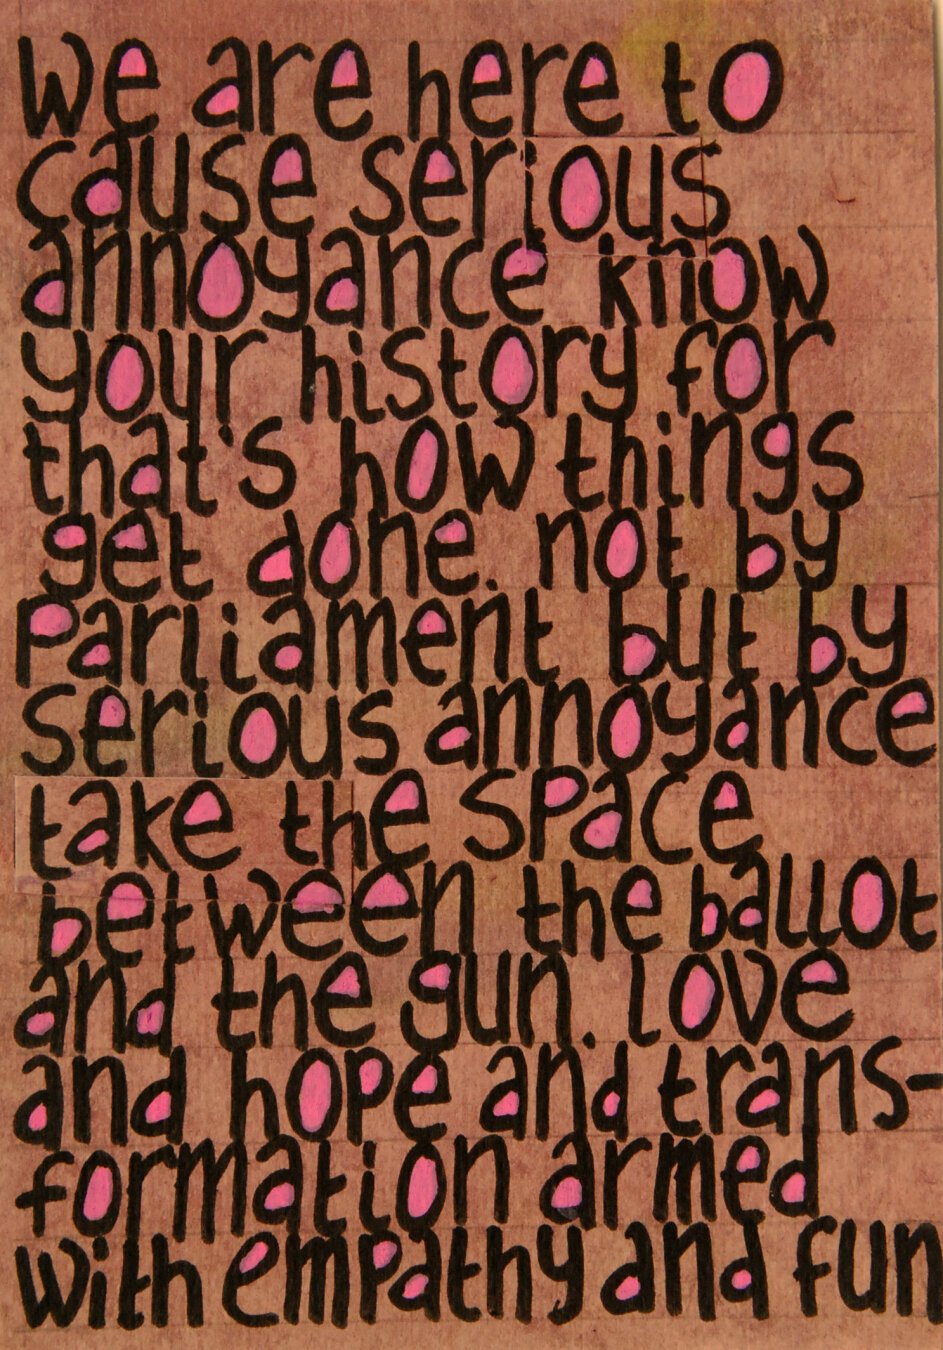 we are here to
cause serious
annoyance know
your history for
that's how things
get done. not by
parliament but by
serious annoyance
take the space
between the ballot
and the gun. love
and hope and trans-
formation armed
with empathy and fun